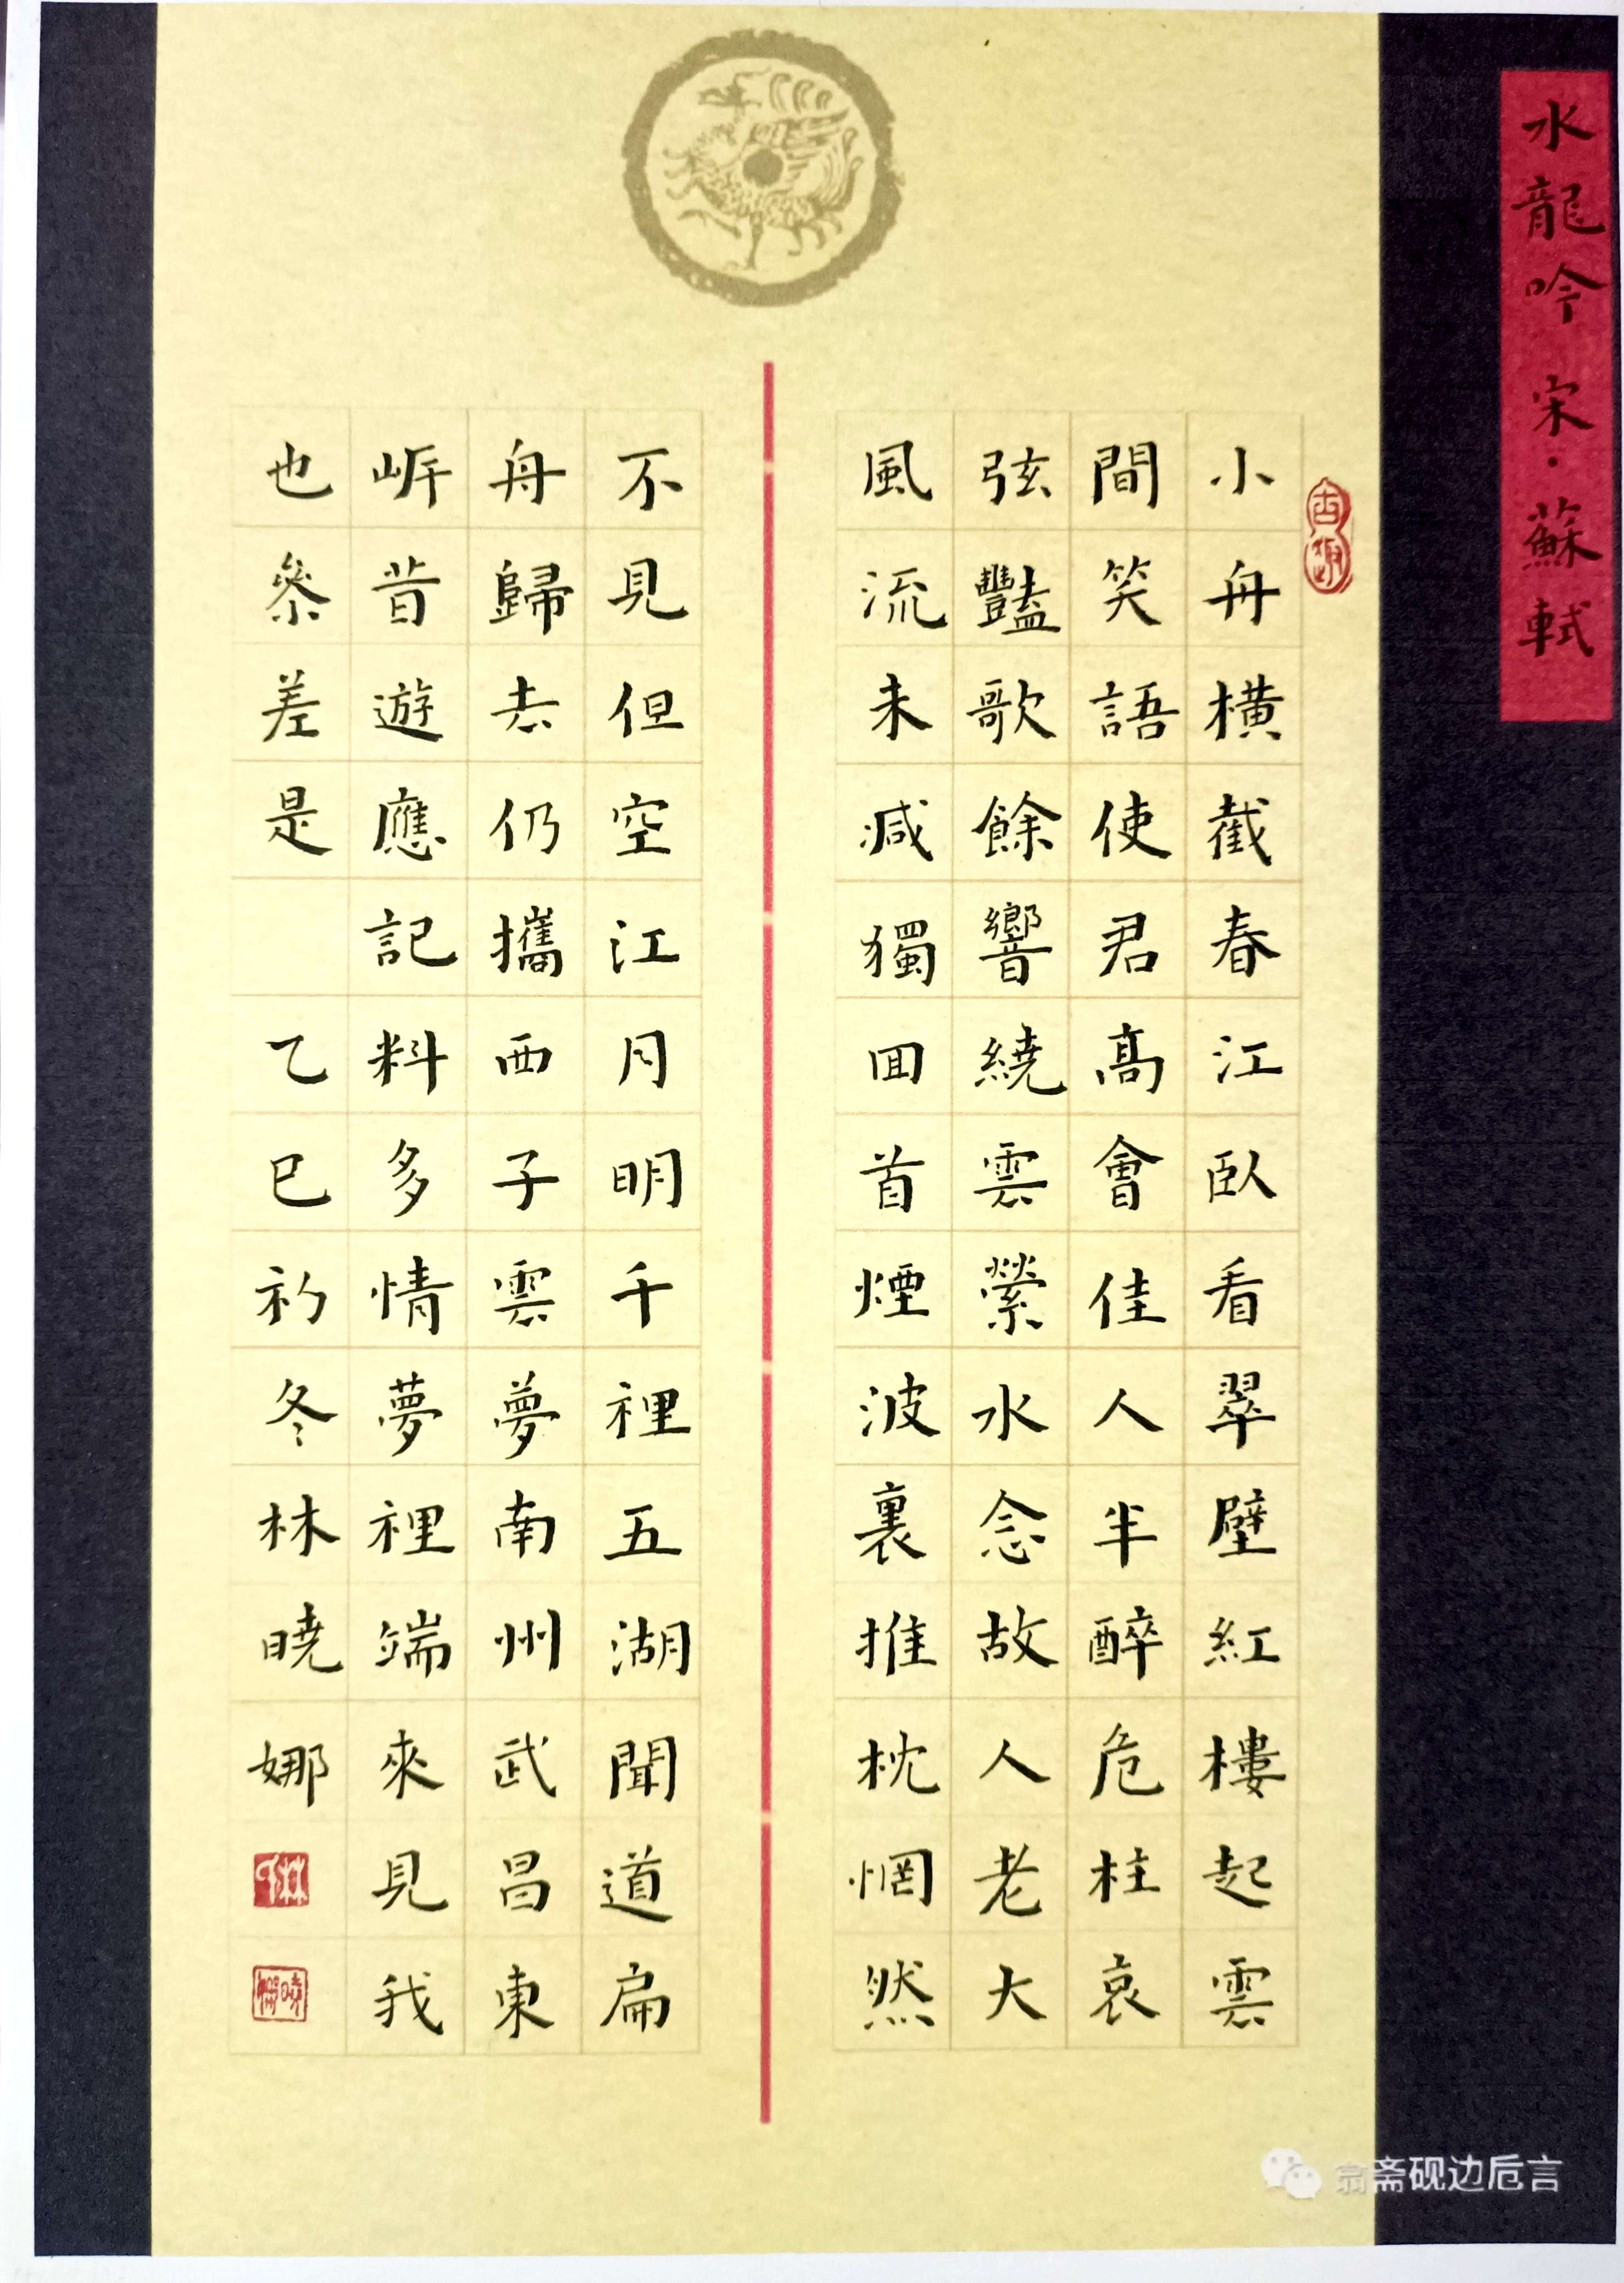 水龍吟 宋·蘇軾
小舟橫截春江臥看翠壁紅樓起雲
間笑語使君高會佳人半醉危柱哀
弦豔歌餘響繞雲縈水念故人老大
風流未減獨回首煙波裏推枕惘然
不見但空江月明千裡五湖聞道扁
舟歸去仍攜西子雲夢南州武昌東
岸昔遊應記料多情夢裡端來見我
也參差是 乙巳初冬林曉娜
斋砚边卮言